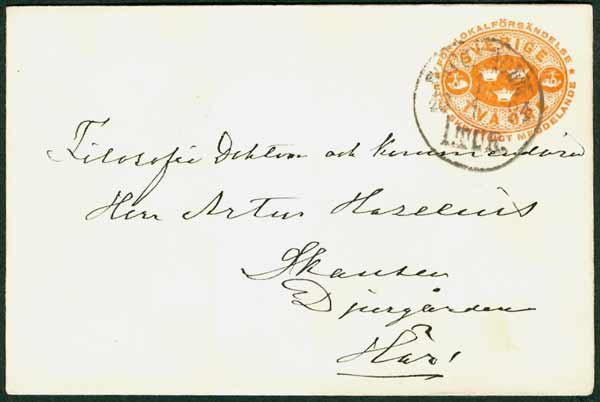 FÖR LOKALFÖRSÄNDELSE
SVERIGE
TVÅ
MEDDELANDE
1.TUR.
Filosofie Doktorn och Kommendören
Herr Artur Hazelius
Skansen
Djurgården
Här!